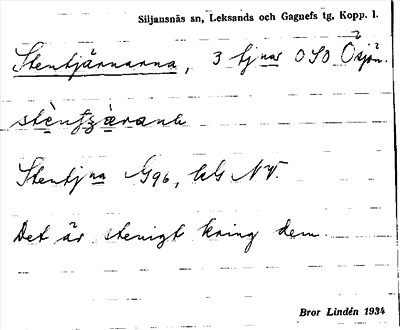 Siljansnäs sn, Leksands och Gagnefs tg, Kopp. l.
Stentjärnarna, 3 tjnar OSO Ösjön.
Stentjna G96, bl G NV.
Det är stenigt kring dem.
Bror Lindén 1934